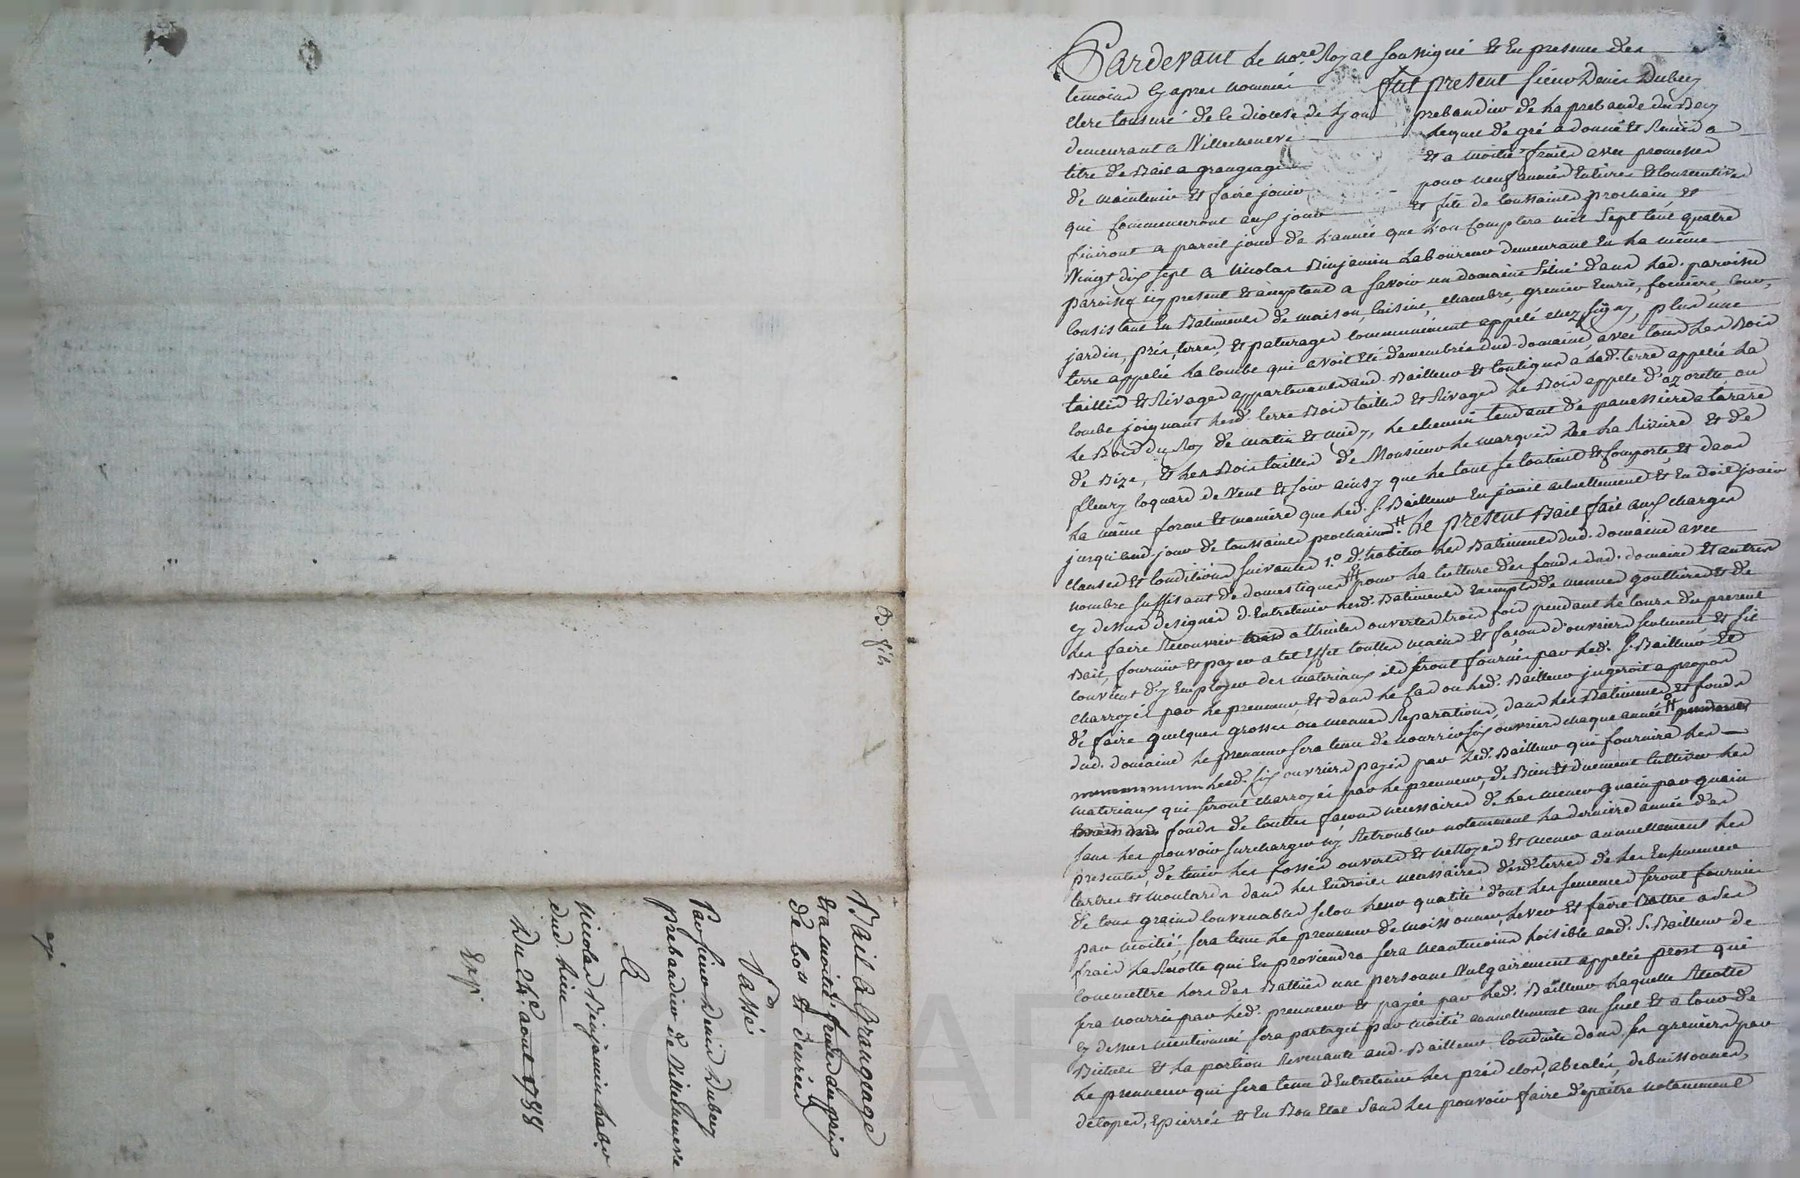 Pardevant Le no.re Royal soussigné Et En presence des
temoins cy apres nommés fut present sieur Denis Dubery
clerc tonsuré de Le diocese de Lyon prebandier de La prebande du Bery
demeurant a Villecheneve Lequel de gré a donné Et Remis a
titre de Bail a grangeage Et a moitié fruits avec promesse
de maintenir Et faire jouir pour neuf années Entieres Et Consecutives
qui commenceront aux jour Et fête de toussaints prochain Et
finiront a pareil jour de L'année que L'on comptera mil Sept Cent quatre
Vingt dix sept a Nicolas Binjamin Laboureur demeurant En La même
paroisse icy present Et acceptant a savoir un domaine situé dans Lad. paroisse
Consistant En Batiments de maison, cuisine, chambre, grenier Ecurie, feniere, Cour,
jardin, prés, terres, Et paturages communément appelé chez, plus une
terre appelée La Combe qui avoit Eté demembrée dud. domaine, avec tous Les Bois
taillis Et Rivages appartenants aud. Bailleur Et contigus a Lad. terre appelée La
Combe joignant Lesd. terre Bois taillis Et Rivages Le Bois appelé d'azorette ou
Le Bois du Roy de matin Et midy, Le chemin tendant de panessiere a tarare
de Bize, Et Les Bois taillis de Monsieur Le marquis La Riviere Et de
fleury coquard de Vent Et soir ainsy que Le tout se contient Et Comporte Et dans
La même forme Et maniere que Led. S. Bailleur En jouit actuellement Et En doit jouir
jusqu'aud. jour de toussaints prochain. Le present Bail fait aux charges
clauses Et Conditions suivantes 1.o d'habiter Les Batiments dud. domaine avec
nombre suffisant de domestiques pour La Culture des fonds dud. domaine Et autres
cy dessus designés d'Entretenir Lesd. Batiments Exempts de menues gouttieres Et de
Les faire Recouvrir a thuiles ouvertes trois fois pendant Le Cours du present
Bail, fournir Et payer a cet Effet toutes mains Et façons d'ouvriers seulement Et s'il
convient d'y Employer des materiaux ils seront fournis par Led. S. Bailleur Et
charroyés par Le preneur Et dans Le Cas ou Led. Bailleur jugeroit a propos
de faire quelques grosses ou menues Reparations, dans Les Batiments Et fonds
dud. domaine Le preneur sera tenu de nourrir six ouvriers chaque année
Lesd. six ouvriers payés par Led. Bailleur qui fournira Les
materiaux qui seront charroyés par Le preneur, de Bien Et duement Cultiver Les
fonds de toutes façons necessaires, de Les mener grain par grain
sans Les pouvoir surcharger ny Retroubler notamment La derniere année des
presentes, de tenir Les fossés ouverts Et nettoyés Et mener annuellement Les
tertres Et moulards dans Les Endroits necessaires desd. terres de Les Ensemencer
de tous grains Convenables selon Leur qualité dont Les semences seront fournies
par moitié, sera tenu Le preneur de moissonner, Lever Et faire Battre a ses
frais La Recolte qui En proviendra sera neantmoins Loisible aud. S. Bailleur de
commettre Lors des Battües une personne Vulgairement appelée prost qui
sera nourrie par Led. preneur Et payée par Led. Bailleur Laquelle Recolte
cy dessus mentionnée sera partagée par moitié annuellement au suel Et a tour de
Bichet Et La portion Revenante aud. Bailleur Conduite dans ses greniers par
Le preneur qui sera tenu d'Entretenir Les prés clos, abealés, debuissonnés,
detopés, Epierrés Et En Bon Etat Sans Les pouvoir faire depaitre notamment
B. fils
Bail a Grangeage
Et a moitié fruits du prix
de 60 tt Et denrées
Passé
Par sieur Denis Dubery
Prebandier de Villecheneve
A
Nicolas Binjamin Labr
dud. Lieu
Du 24e aout 1788
Exp.